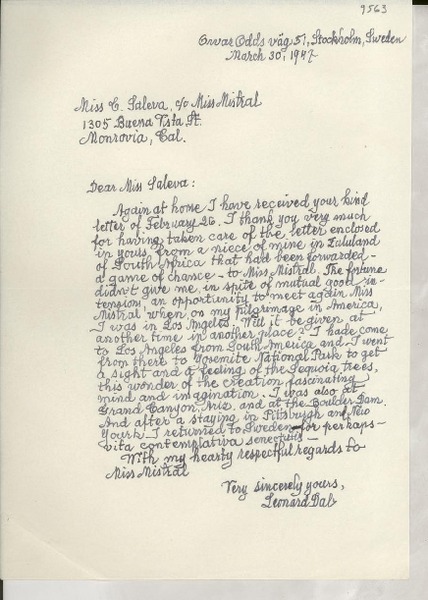 9563
Orvar Odds väg 51, Stockholm, Sweden
March 30, 1947
Miss C. Saleva, c/o Miss Mistral
1305 Buena Vista St.
Monrovia, Cal.
Dear Miss Saleva:
Again at home I have received your kind
letter of February 26. I thank you very much
for having taken care of the letter enclosed
in yours, from a niece of mine in Zululand
of South Africa, that had been forwarded -
a game of chance - to Miss Mistral. The fortune
didn't give me, in spite of mutual good in-
tension, an opportunity to meet again Miss
Mistral when on my pilgrimage in America,
I was in Los Angeles. Will it be given at
another time in another place? I hade come
to Los Angeles from South America and I went
from there to Yosemite National Park to get
a sight and a feeling of the Sequoia trees,
this wonder of the creation fascinating
mind and imagination. I was also at
Grand Canyon, Ariz. and at the Boulder Dam.
And after a staying in Pittsburgh and New
York I returned to Sweden - for perhaps -
vita contemplativa senectutis -
With my hearty respectful regards to
Miss Mistral
Very sincerely yours,
Leonard Dal